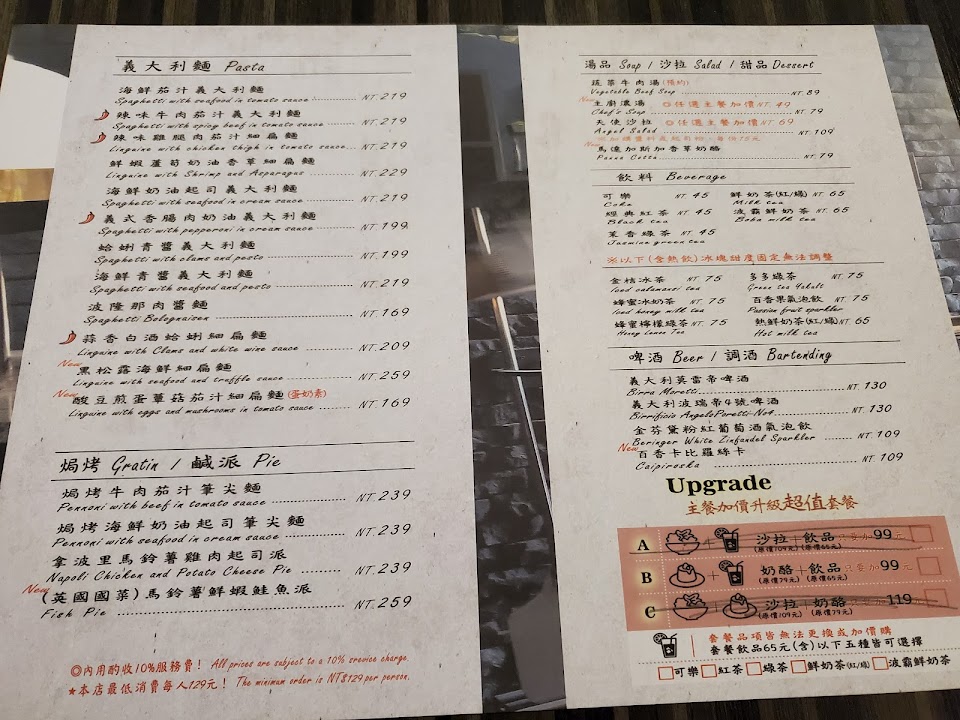 義大利麵 Pasta
海鮮茄汁義大利麵
Spaghetti with seafood in tomato sauce NT.219
辣味牛肉茄汁義大利麵
Spaghetti with spicy beef in tomato sauce NT.219
辣味雞腿肉茄汁細扁麵
Linguine with chicken thigh in tomato sauce NT.219
鮮蝦蘆筍奶油香草細扁麵
Linguine with Shrimp and Asparagus NT.229
海鮮奶油起司義大利麵
Spaghetti with seafood in cream sauce NT.219
義式香腸肉奶油義大利麵
Spaghetti with pepperoni in cream sauce NT.199
蛤蜊青醬義大利麵
Spaghetti with clams and pesto NT.199
海鮮青醬義大利麵
Spaghetti with seafood and pesto NT.219
波隆那肉醬麵
Spaghetti Bolognaisen NT.169
蒜香白酒蛤蜊細扁麵
Linguine with Clams and white wine sauce NT.209
New
黑松露海鮮細扁麵
Linguine with seafood and truffle sauce NT.259
New
酸豆煎蛋蕈菇茄汁細扁麵(蛋奶素)
Linguine with eggs and mushrooms in tomato sauce NT.169
焗烤 Gratin / 鹹派 Pie
焗烤牛肉茄汁筆尖麵
Pennoni with beef in tomato sauce NT.239
焗烤海鮮奶油起司筆尖麵
Pennoni with seafood in cream sauce NT.239
拿波里馬鈴薯雞肉起司派
Napoli Chicken and Potato Cheese Pie NT.239
New
(英國國菜)馬鈴薯鮮蝦鮭魚派
Fish Pie NT.259
◎內用酌收10%服務費! All prices are subject to a 10% srevice charge.
★本店最低消費每人129元! The minimum order is NT$129 per person.
湯品 Soup / 沙拉 Salad / 甜品 Dessert
蔬菜牛肉湯(預約)
Vegetable Beef Soup NT.89
New
主廚濃湯 ◎任選主餐加價 NT.49
Chef's Soup NT.79
天使沙拉 ◎任選主餐加價 NT.69
Angel Salad NT.109
New
馬達加斯加香草奶酪
Panna Costa NT.79
飲料 Beverage
可樂 NT.45 鮮奶茶(紅/綠) NT.65
Coke Milk tea
經典紅茶 NT.45 波霸鮮奶茶 NT.65
Black tea Boba milk tea
茉香綠茶 NT.45
Jasmine green tea
※以下(含熱飲)冰塊甜度固定無法調整
金桔冰茶 NT.75 多多綠茶 NT.75
Iced calamansi tea Green tea Yakult
蜂蜜冰奶茶 NT.75 百香果氣泡飲 NT.75
Iced honey milk tea Passion fruit sparkler
蜂蜜檸檬綠茶 NT.75 熱鮮奶茶(紅/綠) NT.65
Honey Lemon Tea Hot milk tea
啤酒 Beer / 調酒 Bartending
義大利莫雷帝啤酒
Birra Moretti NT.130
義大利波瑞帝4號啤酒
Birrificio AngeloPoretti No4 NT.130
金芬黛粉紅葡萄酒氣泡飲
Beringer White Zinfandel Sparkler NT.109
New
百香卡比羅絲卡
Caipiroska NT.109
Upgrade
主餐加價升級超值套餐
A 沙拉+飲品只要加99元
(原價109元) (原價65元)
B 奶酪+飲品只要加99元
(原價79元) (原價65元)
C 沙拉+奶酪 119
(原價109元) (原價79元)
套餐品項皆無法更換或加價購
套餐飲品65元(含)以下五種皆可選擇
□可樂 □紅茶 □綠茶 □鮮奶茶(紅/綠) □波霸鮮奶茶